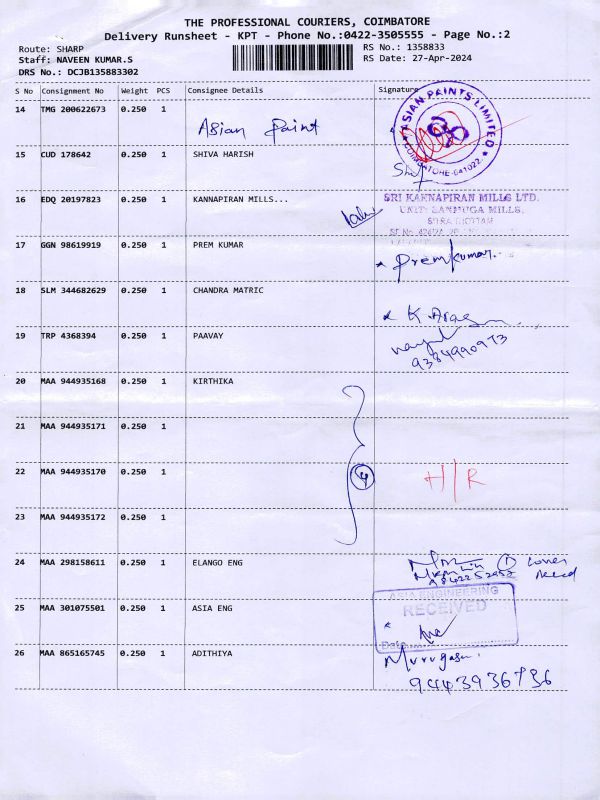 THE PROFESSIONAL COURIERS, COIMBATORE
Delivery Runsheet - KPT - Phone No.:0422-3505555 - Page No.:2
Route: SHARP
RS No.: 1358833
Staff: NAVEEN KUMAR.S
RS Date: 27-Apr-2024
DRS No.: DCJB135883302
S No Consignment No Weight PCS Consignee Details Signature
14 TMG 200622673 0.250 1 Asian Paint
ASIAN PAINTS LIMITED
COIMBATORE-641022
15 CUD 178642 0.250 1 SHIVA HARISH
16 EDQ 20197823 0.250 1 KANNAPIRAN MILLS...
SRI KANNAPIRAN MILLS LTD.
UNIT: SANMUGA MILLS,
17 GGN 98619919 0.250 1 PREM KUMAR Premkumar.
18 SLM 344682629 0.250 1 CHANDRA MATRIC
K
19 TRP 4368394 0.250 1 PAAVAY
9384990973
20 MAA 944935168 0.250 1 KIRTHIKA
21 MAA 944935171 0.250 1
22 MAA 944935170 0.250 1 4 H/R
23 MAA 944935172 0.250 1
24 MAA 298158611 0.250 1 ELANGO ENG
1 cover
25 MAA 301075501 0.250 1 ASIA ENG
ASIA ENGINEERING
RECEIVED
Date
26 MAA 865165745 0.250 1 ADITHIYA Murugasu.
9443936736